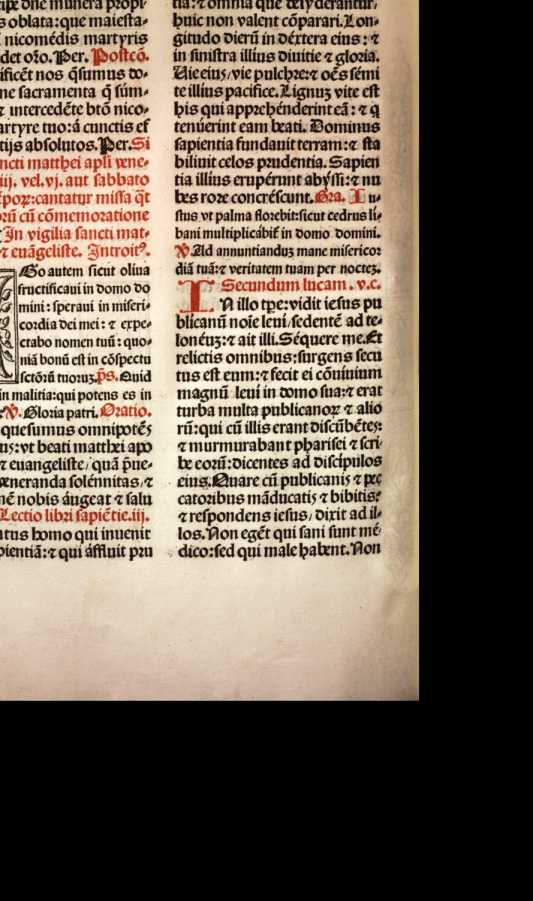 dne munera propi-
oblata: que maiesta-
nicomédis martyris
det oro. Per. Postcõ.
ificẽt nos q̃sumus do-
ne sacramenta q̃ sũm-
⁊ intercedẽte btõ nico-
artyre tuo: a cunctis ef
tijs absolutos. Per. Si
ncti matthei apli vene-
iij. vel. vj. aut sabbato
põꝝ: cantatur missa q̃t
orũ cũ cõmemoratione
In vigilia sancti mat-
⁊ euãgeliste. Introitꝰ.
Go autem sicut oliua
fructificaui in domo do
mini: speraui in miseri-
cordia dei mei: ⁊ expe-
ctabo nomen tuũ: quo-
niã bonũ est in cõspectu
sctõrũ tuoruz. ps. Quid
in malitia: qui potens es in
℣. Gloria patri. Oratio.
quesumus omnipotẽs
us: vt beati matthei apo
⁊ euangeliste/ quã p̃ue-
veneranda solénnitas/ ⁊
nẽ nobis áugeat ⁊ salu
Lectio libri sapiẽtie. iij.
atus homo qui inuenit
pientiã: ⁊ qui áffluit pru
tia: ⁊ omnia que desyderantur/
huic non valent cõparari. Lon-
gitudo dierũ in déxtera eius: ⁊
in sinistra illius diuitie ⁊ gloria.
Uie eiuz/ vie pulchre: ⁊ oẽs sémi
te illius pacifice. Lignuz vite est
his qui apprehénderint eã: ⁊ q
tenúerint eam beati. Dominus
sapientia fundauit terram: ⁊ sta
biliuit celos prudentia. Sapien
tia illius erupérunt abyssi: ⁊ nu
bes rore concréscunt. Gra. Iu-
stus vt palma florebit: sicut cedrus li-
bani multiplicabiť in domo domini.
℣. Ad annuntianduz mane misericor
diã tuã: ⁊ veritatem tuam per noctez.
Secundum lucam. v. c.
IN illo tpe: vidit iesus pu
blicanũ noĩe leui/ sedentẽ ad te-
lonéuz: ⁊ ait illi. Séquere me. Et
relictis omnibus: surgens secu
tus est eum: ⁊ fecit ei cõuiuium
magnũ leui in domo sua: ⁊ erat
turba multa publicanoꝝ ⁊ alio
rũ: qui cũ illis erant discũbẽtes:
⁊ murmurabant pharisei ⁊ scri-
be eorũ: dicentes ad discipulos
eius. Quare cũ publicanis ⁊ pec
catoribus mãducatis ⁊ bibitis?
⁊ respondens iesus/ dixit ad il-
los. Non egẽt qui sani sunt mé
dico: sed qui male habent. Non